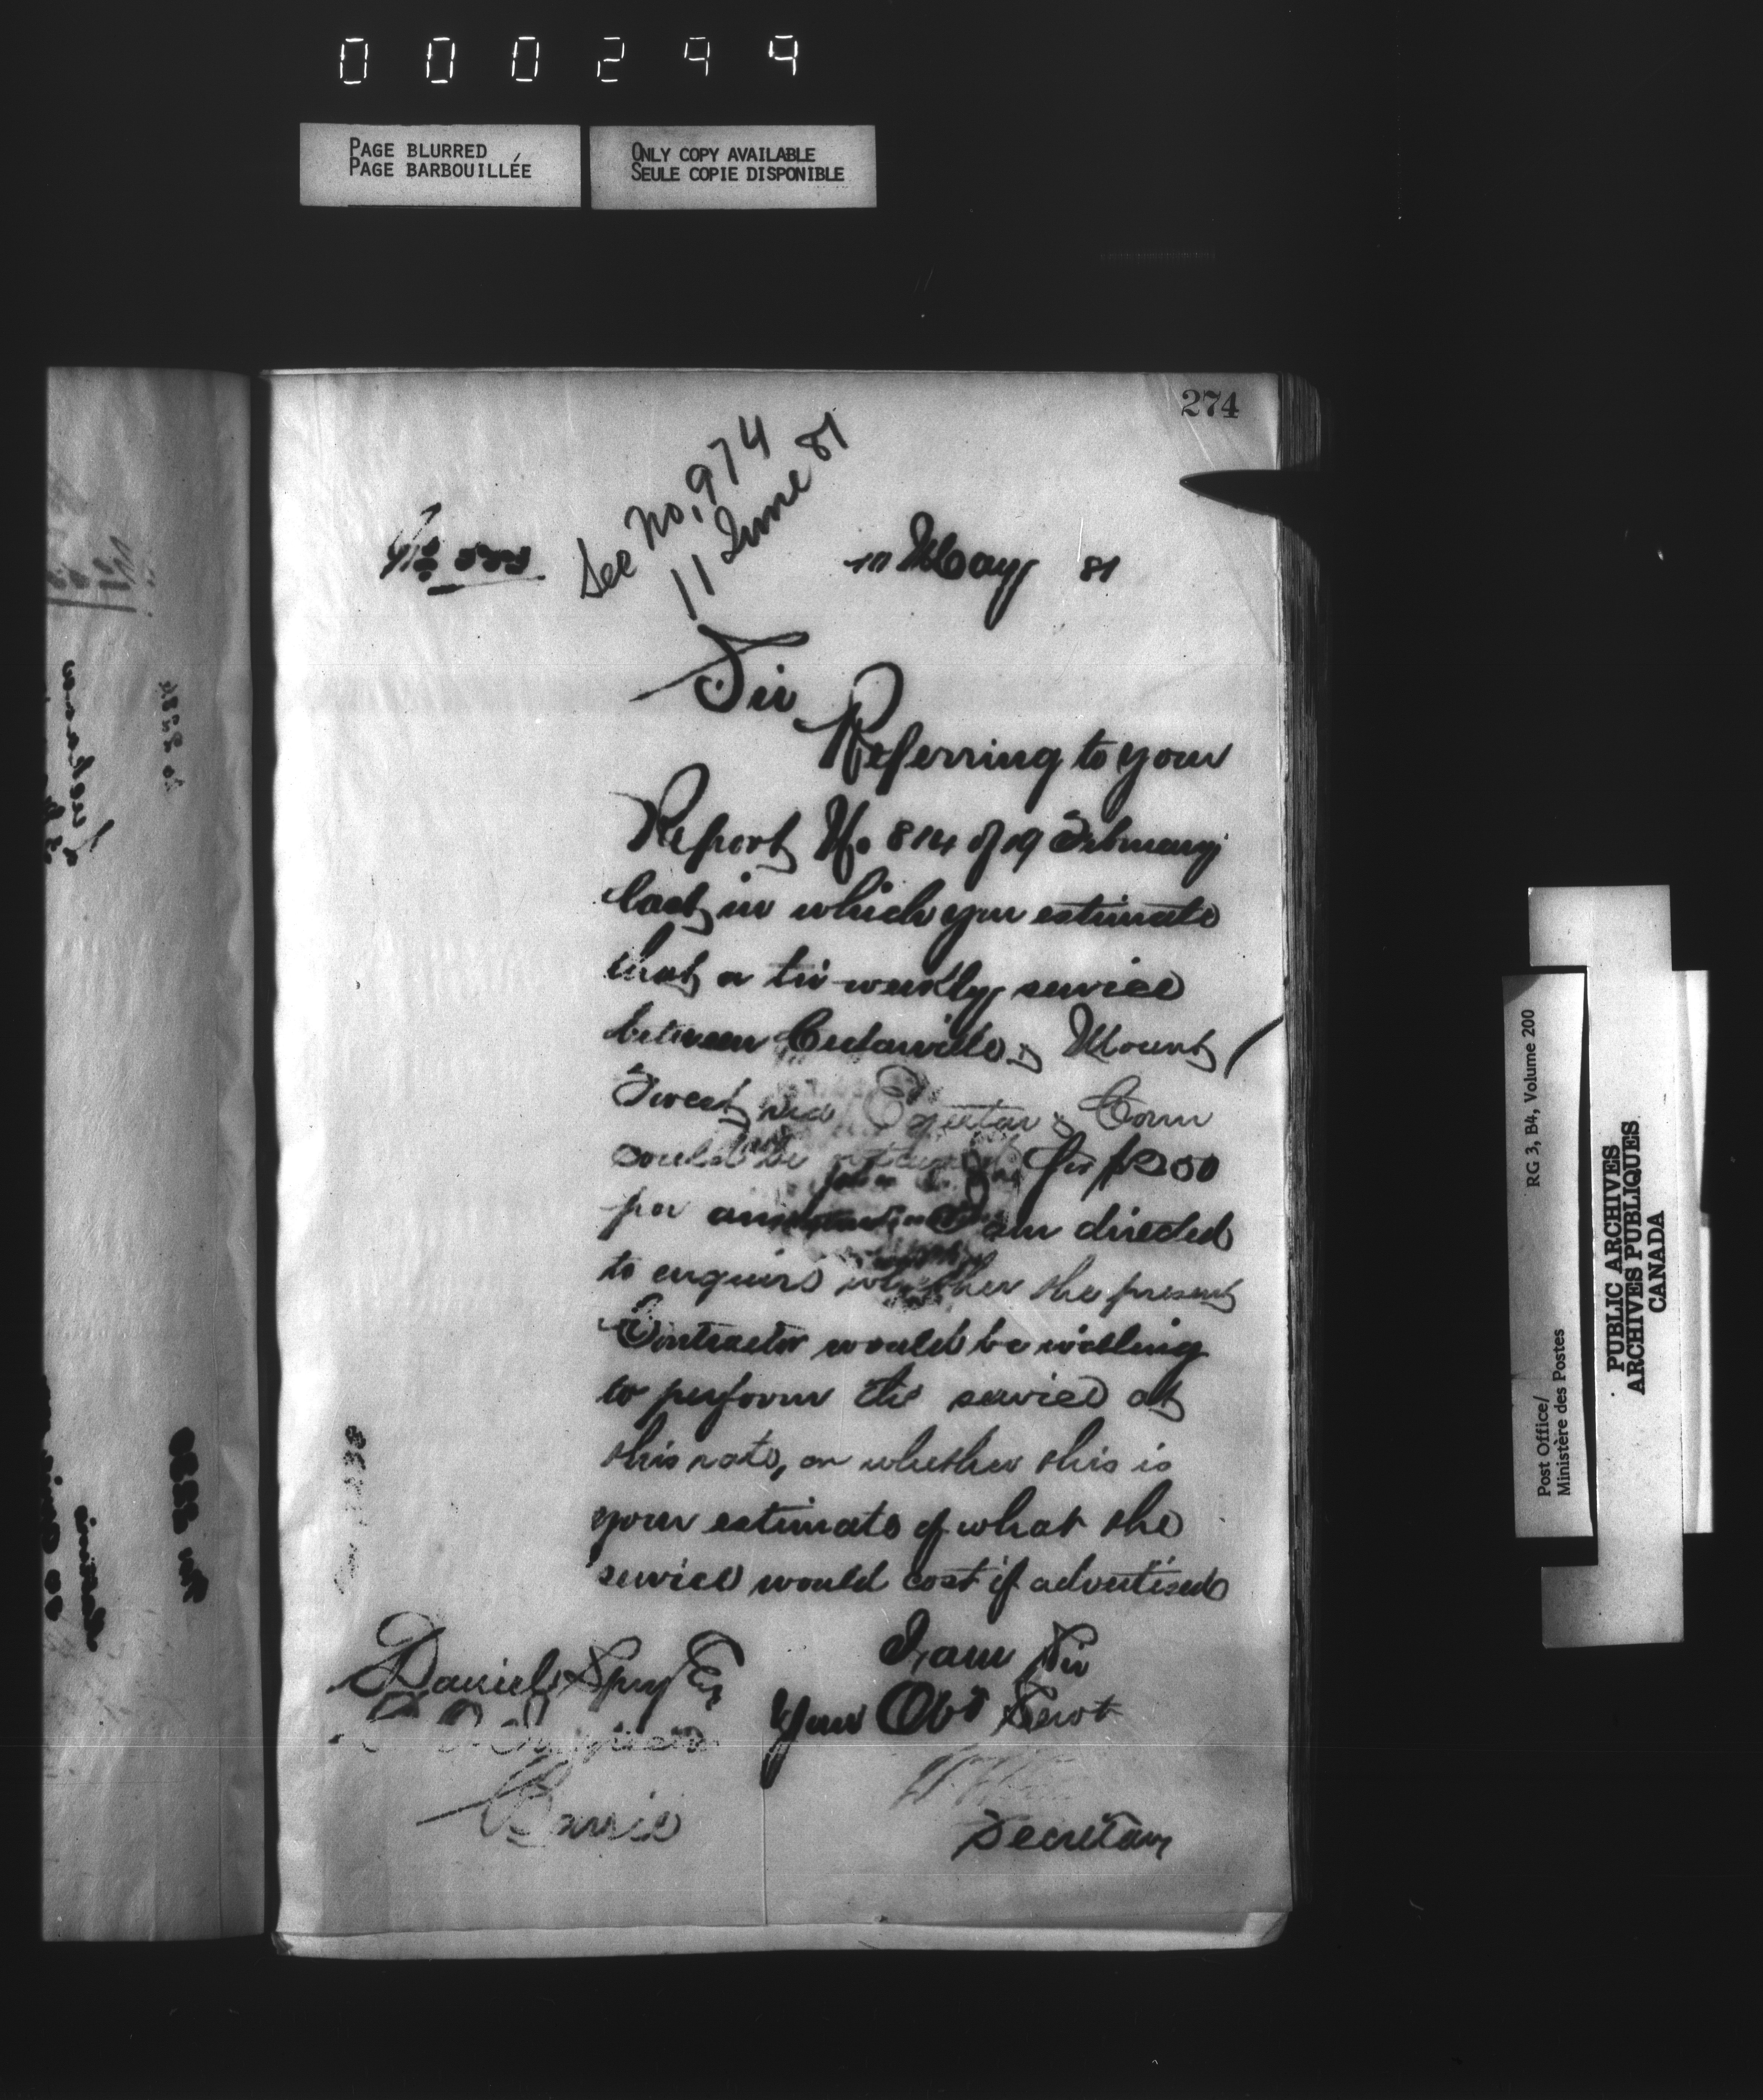 000299
PAGE BLURRED
PAGE BARBOUILLÉE
ONLY COPY AVAILABLE
SEULE COPIE DISPONIBLE
274
See No. 974
11 June 81
No
May 81
Sir
Referring to your
Report No 814 of 19 February
last in which you estimate
that a tri-weekly service
between Cedarville & Mount
Forest via & Conn
could be for $200
per am directed
to enquire whether the present
Contractor would be willing
to perform the service at
this rate, or whether this is
your estimate of what the
service would cost if advertised
I am Sir
Your Obt Servt
Secretary
Daniel Spry Esq
P O Inspector
Barrie
RG 3, B4, Volume 200
Post Office/
Ministère des Postes
PUBLIC ARCHIVES
ARCHIVES PUBLIQUES
CANADA